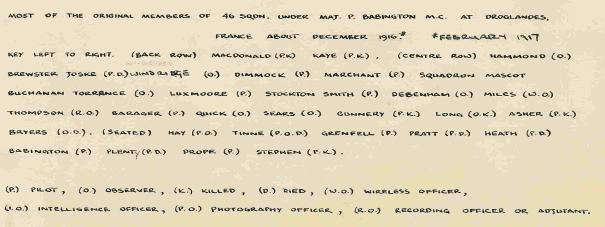 MOST OF THE ORIGINAL MEMBERS OF 46 SQDN. UNDER MAJ. P. BABINGTON M.C. AT DROGLANDES,
FRANCE ABOUT DECEMBER 1916.* *FEBRUARY 1917
KEY LEFT TO RIGHT. (BACK ROW) MACDONALD (P.K) KAYE (P.K), (CENTRE ROW) HAMMOND (O.)
BREWSTER JOSKE (P.D.) (O.) DIMMOCK (P.) MARCHANT (P.) SQUADRON MASCOT
BUCHANAN TORRANCE (O.) LUXMOORE (P.) STOCKTON SMITH (P.) DEBENHAM (O.) MILES (W.O.)
THOMPSON (R.O.) BARAGER (P.) QUICK (O.) SEARS (O.) GUNNERY (P.K.) LONG (O.K.) ASHER (P.K.)
BRYERS (O.O.). (SEATED) HAY (P.O.) TINNE (P.O.D.) GRENFELL (P.) PRATT (P.D.) HEATH (P.D.)
BABINGTON (P.) PLENTY (P.D.) DROPE (P.) STEPHEN (P.K.).
(P.) PILOT, (O.) OBSERVER, (K.) KILLED, (D.) DIED, (W.O.) WIRELESS OFFICER,
(I.O.) INTELLIGENCE OFFICER, (P.O.) PHOTOGRAPHY OFFICER, (R.O.) RECORDING OFFICER OR ADJUTANT.